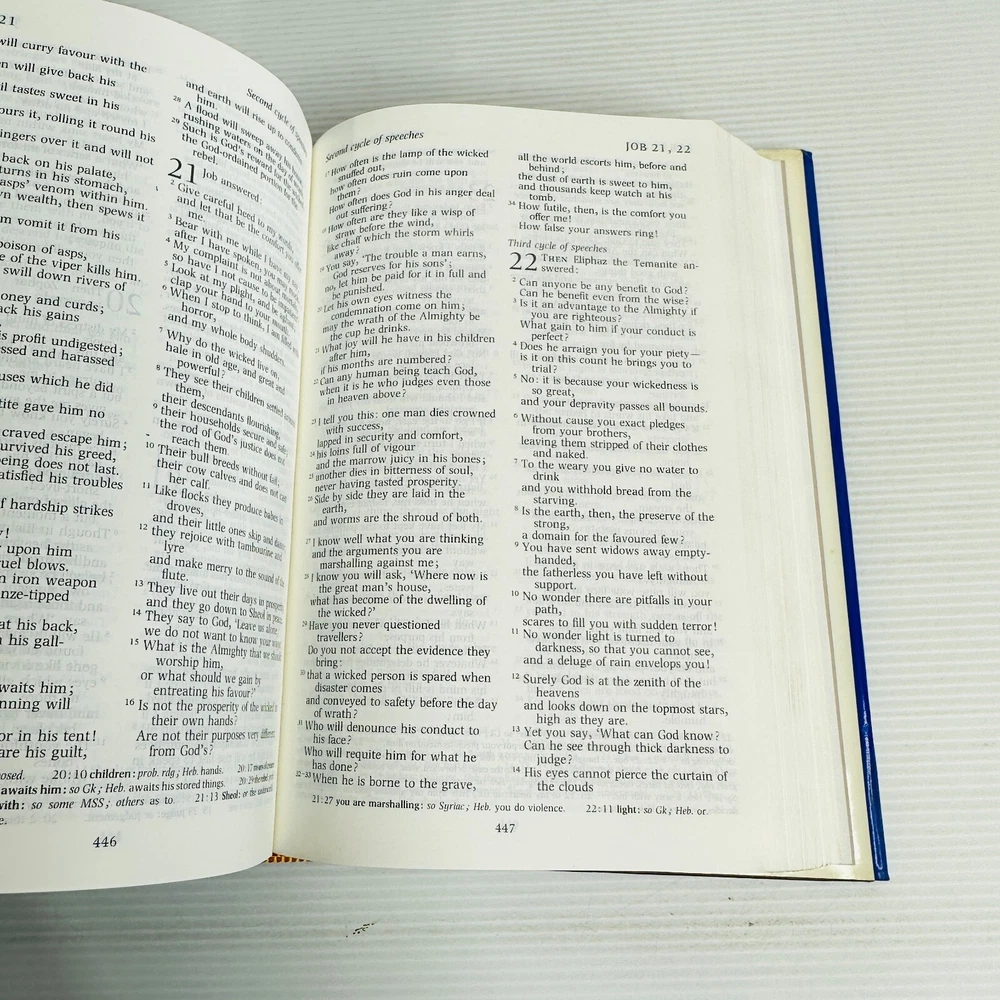 21
will curry favour with the
n will give back his
il tastes sweet in his
ours it, rolling it round his
ingers over it and will not
back on his palate,
turns in his stomach,
asps' venom within him.
wn wealth, then spews it
m vomit it from his
poison of asps,
e of the viper kills him.
swill down rivers of
oney and curds;
ack his gains
is profit undigested;
essed and harassed
uses which he did
tite gave him no
craved escape him;
survived his greed;
being does not last.
satisfied his troubles
f hardship strikes
y!
upon him
ruel blows.
n iron weapon
nze-tipped
at his back,
his gall-
waits him;
nning will
or in his tent!
are his guilt,
Second cycle of
and earth will rise up to condemn
him.
28 A flood will sweep away his
rushing waters on the day of
29 Such is God's reward for the
the God-ordained portion for the
rebel.
21 Job answered:
2 Give careful heed to my words,
and let that be the comfort you
me.
3 Bear with me while I
after I have spoken, you may
4 My complaint is not about
so have I not cause to be
5 Look at my plight, and be
clap your hand to your mouth.
6 When I stop to think, I am filled with
horror,
and my whole body shudders.
7 Why do the wicked live on,
hale in old age, and great and
powerful?
8 They see their children settled
them,
their descendants flourishing,
9 their households secure and safe;
the rod of God's justice does not
reach them.
10 Their bull breeds without fail;
their cow calves and does not cast
her calf.
11 Like flocks they produce babes in
droves,
and their little ones skip and dance;
12 they rejoice with tambourine and
lyre
and make merry to the sound of the
flute.
13 They live out their days in prosperity
and they go down to Sheol in peace.
14 They say to God, 'Leave us alone;
we do not want to know your ways!
15 What is the Almighty that we should
worship him,
or what should we gain by
entreating his favour?'
16 Is not the prosperity of the wicked in
their own hands?
Are not their purposes very different
from God's?
posed. 20:10 children: prob. rdg; Heb. hands.
awaits him: so Gk; Heb. awaits his stored things.
with: so some MSS; others as to. 21:13 Sheol: or the
e.
446
Second cycle of speeches
JOB 21, 22
17 How often is the lamp of the wicked
snuffed out,
how often does ruin come upon
them?
How often does God in his anger deal
out suffering?
18 How often are they like a wisp of
straw before the wind,
like chaff which the storm whirls
away?
19 You say, 'The trouble a man earns,
God reserves for his sons';
no, let him be paid for it in full and
be punished.
20 Let his own eyes witness the
condemnation come on him;
may the wrath of the Almighty be
the cup he drinks.
21 What joy will he have in his children
after him,
if his months are numbered?
22 Can any human being teach God,
when it is he who judges even those
in heaven above?
23 I tell you this: one man dies crowned
with success,
lapped in security and comfort,
24 his loins full of vigour
and the marrow juicy in his bones;
25 another dies in bitterness of soul,
never having tasted prosperity.
26 Side by side they are laid in the
earth,
and worms are the shroud of both.
27 I know well what you are thinking
and the arguments you are
marshalling against me;
28 I know you will ask, 'Where now is
the great man's house,
what has become of the dwelling of
the wicked?'
29 Have you never questioned
travellers?
Do you not accept the evidence they
bring:
30 that a wicked person is spared when
disaster comes
and conveyed to safety before the day
of wrath?
31 Who will denounce his conduct to
his face?
Who will requite him for what he
has done?
32-33 When he is borne to the grave,
all the world escorts him, before and
behind;
the dust of earth is sweet to him,
and thousands keep watch at his
tomb.
34 How futile, then, is the comfort you
offer me!
How false your answers ring!
Third cycle of speeches
22 THEN Eliphaz the Temanite an-
swered:
2 Can anyone be any benefit to God?
Can he benefit even from the wise?
3 Is it an advantage to the Almighty if
you are righteous?
What gain to him if your conduct is
perfect?
4 Does he arraign you for your piety—
is it on this count he brings you to
trial?
5 No: it is because your wickedness is
so great,
and your depravity passes all bounds.
6 Without cause you exact pledges
from your brothers,
leaving them stripped of their clothes
and naked.
7 To the weary you give no water to
drink
and you withhold bread from the
starving.
8 Is the earth, then, the preserve of the
strong,
a domain for the favoured few?
9 You have sent widows away empty-
handed,
the fatherless you have left without
support.
10 No wonder there are pitfalls in your
path,
scares to fill you with sudden terror!
11 No wonder light is turned to
darkness, so that you cannot see,
and a deluge of rain envelops you!
12 Surely God is at the zenith of the
heavens
and looks down on the topmost stars,
high as they are.
13 Yet you say, 'What can God know?
Can he see through thick darkness to
judge?
14 His eyes cannot pierce the curtain of
the clouds
21:27 you are marshalling: so Syriac; Heb. you do violence. 22:11 light: so Gk; Heb. or.
447